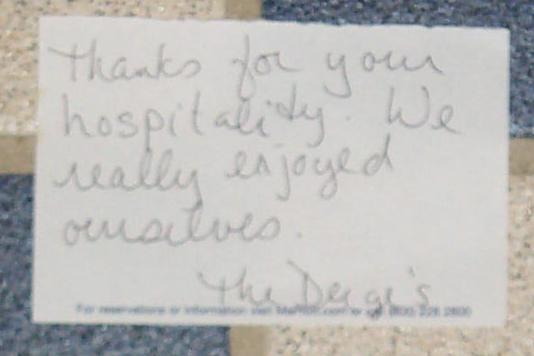 Thanks for your
hospitality. We
really enjoyed
ourselves.
The Deigi's
For reservations or information visit Marriott.com or call (800) 228 2800